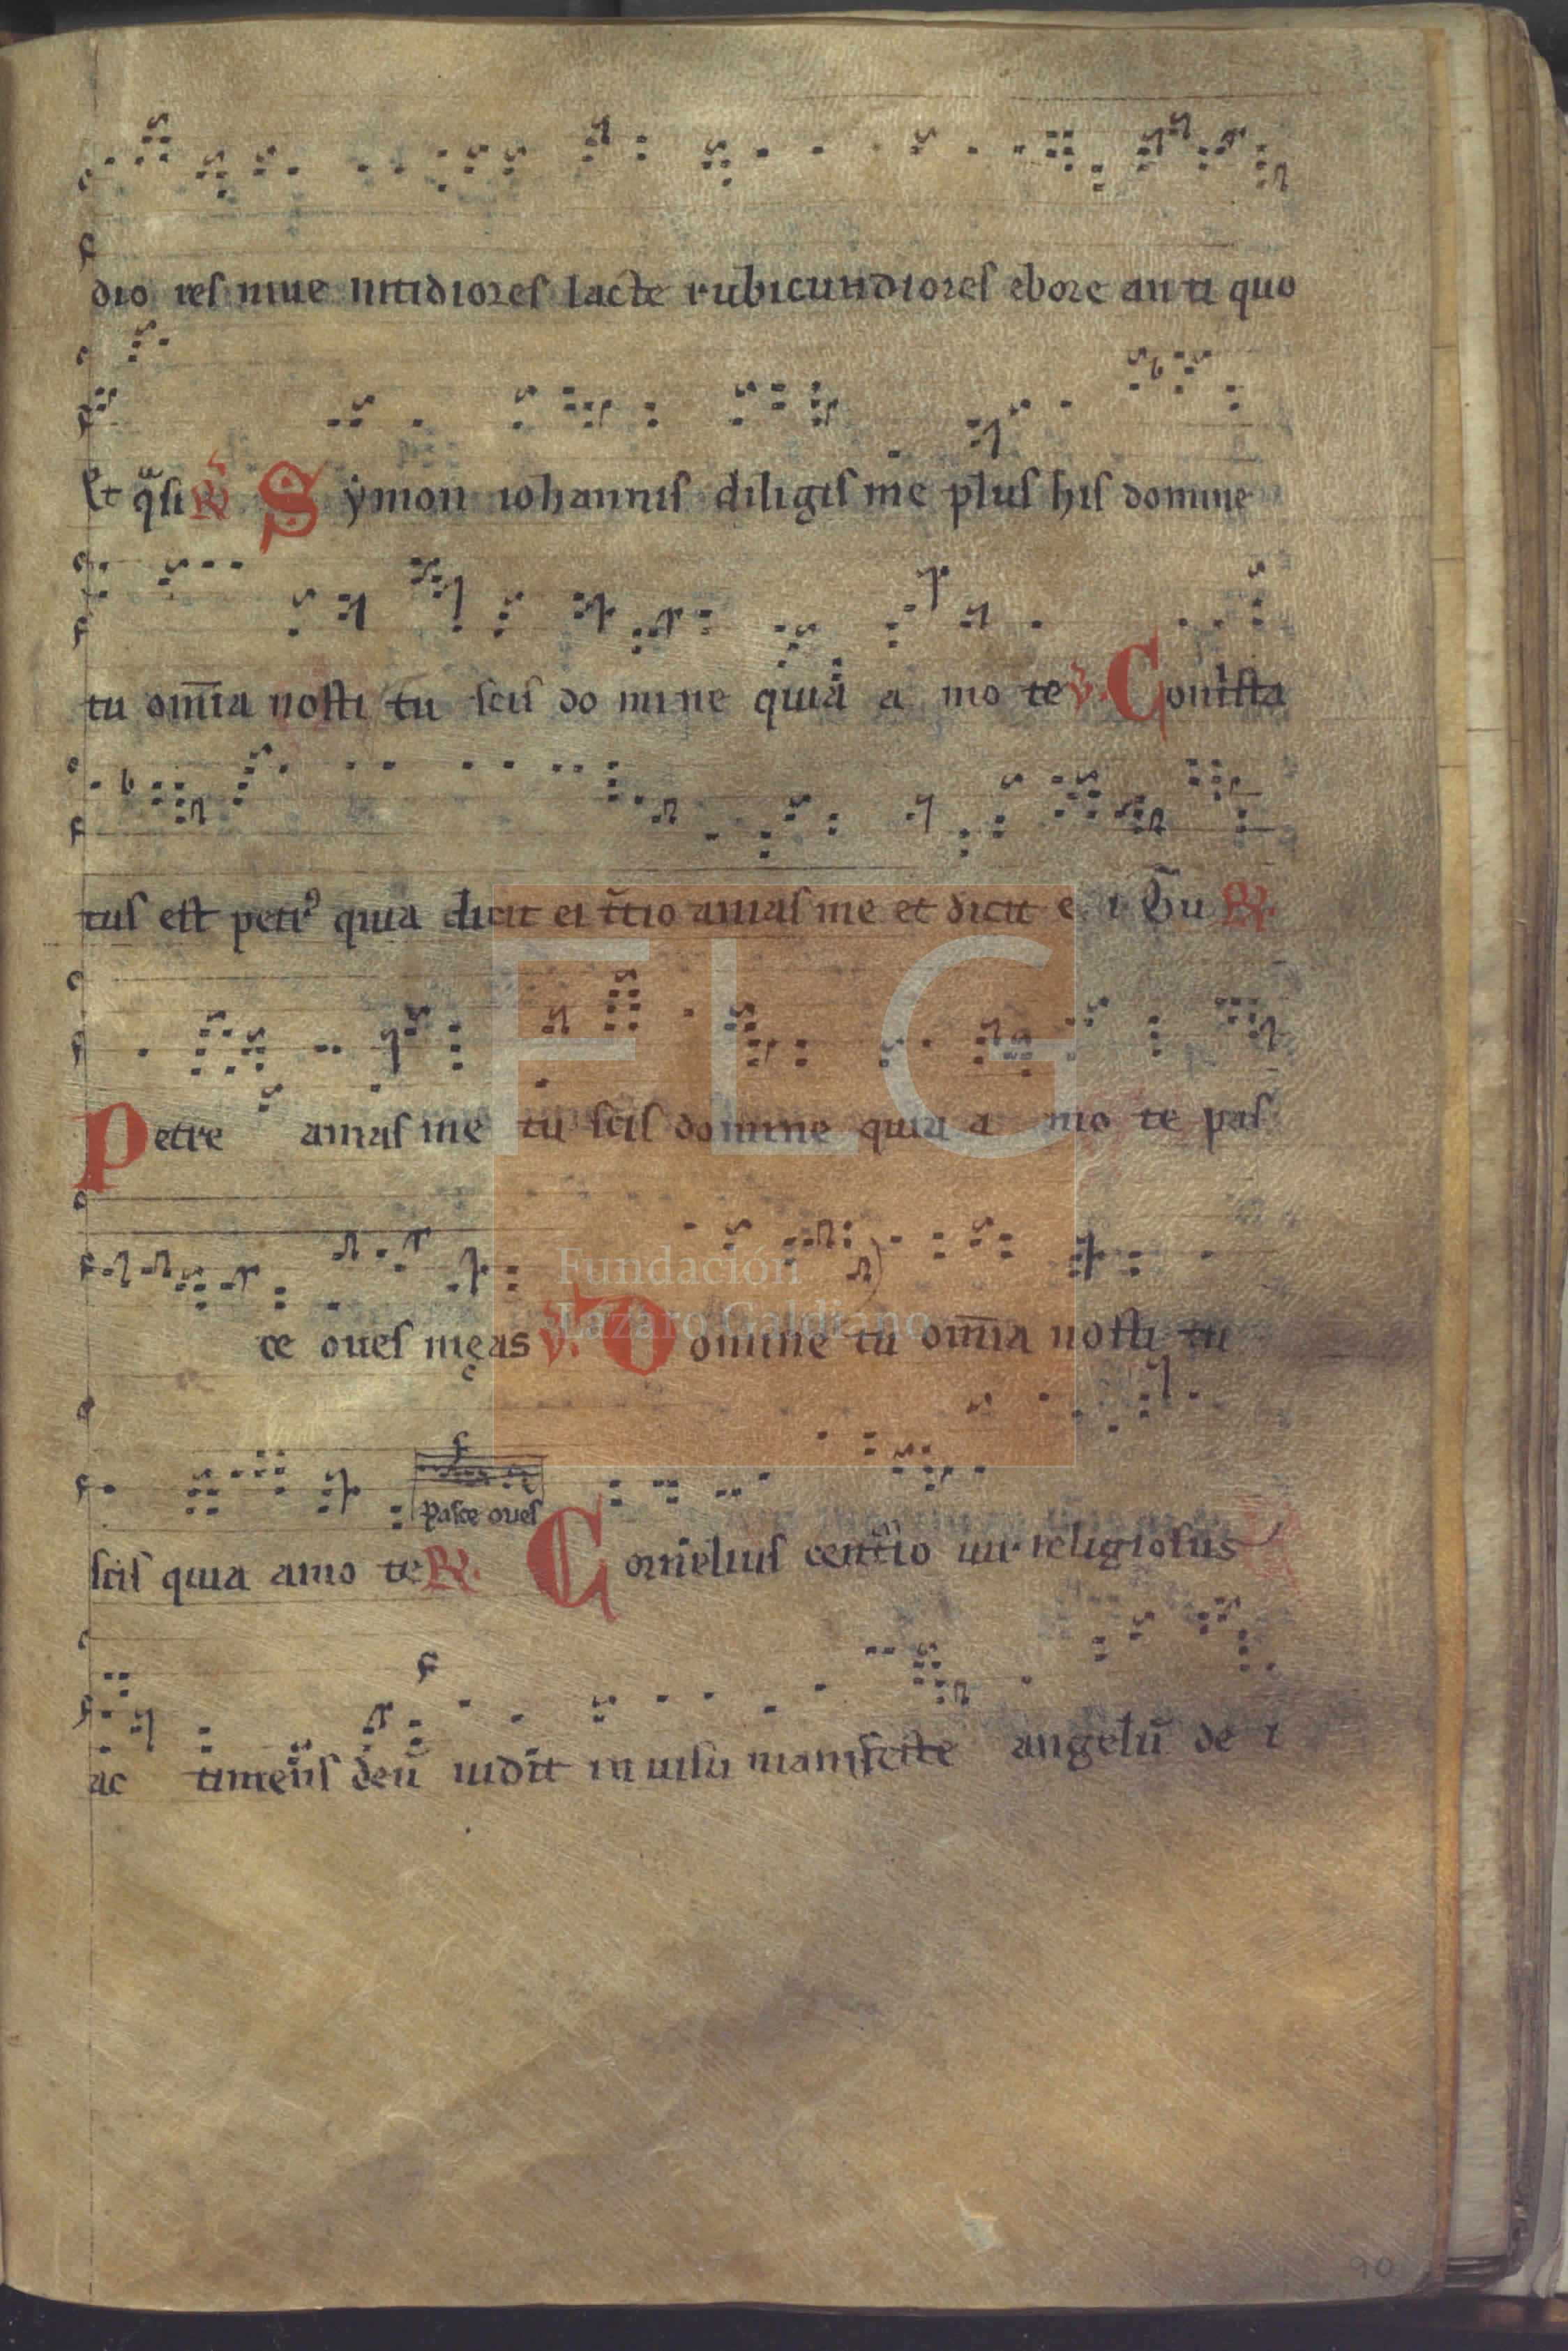 dio res niue nitidiores lacte rubicundiores ebore an ti quo
Et qͣsi R̃ Symon iohannis diligis me plus his domine
tu om̅ia nosti tu scis do mine quia a mo te ꝟ. Contˢta
tus est petrꝰ quia dicit ei t̃cio amas me et dicit e i Tu R.
Petre amas me tu scis domine quia a mo te pas
ce oues męas ꝟ. Domine tu om̅ia nosti tu
Pasce oues
scis quia amo te R. Cornelius centᷓio uir religiosus
ac timens deu̅ uidit in uisu manifeste angelu̅ de i
FLG
Fundación
Lázaro Galdiano
90